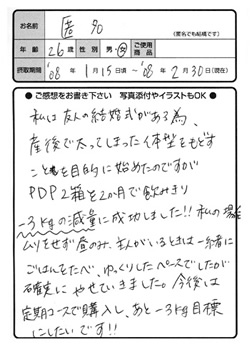 お名前 匿名
(匿名でも結構です)
年齢 26歳 性別 男・女 ご使用商品
摂取期間 '08年1月15日頃〜'08年2月30日(現在)
●ご感想をお書き下さい 写真添付やイラストもOK●
私は友人の結婚式がある為、
産後で太ってしまった体型をもどす
ことを目的に始めたのですが
PDP2箱を2か月で飲みきり
-3kgの減量に成功しました!!私の場合
ムリをせず昼のみ、主人がいるときは一緒に
ごはんをたべ、ゆっくりしたペースでしたが
確実にやせていきました。今後は
定期コースで購入し、あと-3kg目標
にしたいです!!